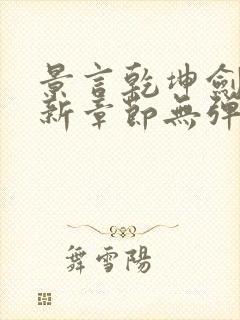 景言乾坤劍
新章節無彈
舞雪陽